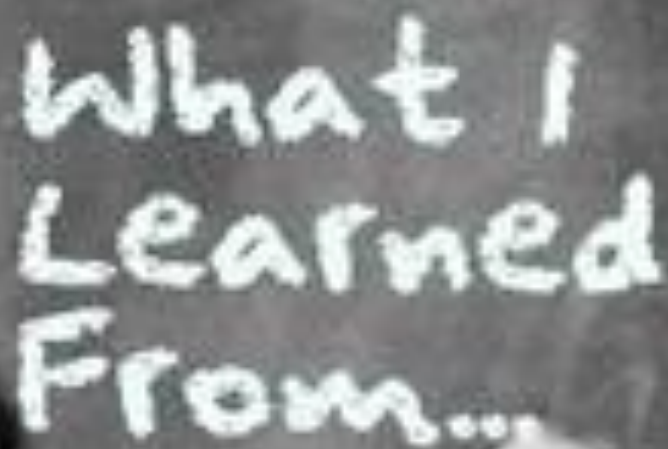 What I
Learned
From...